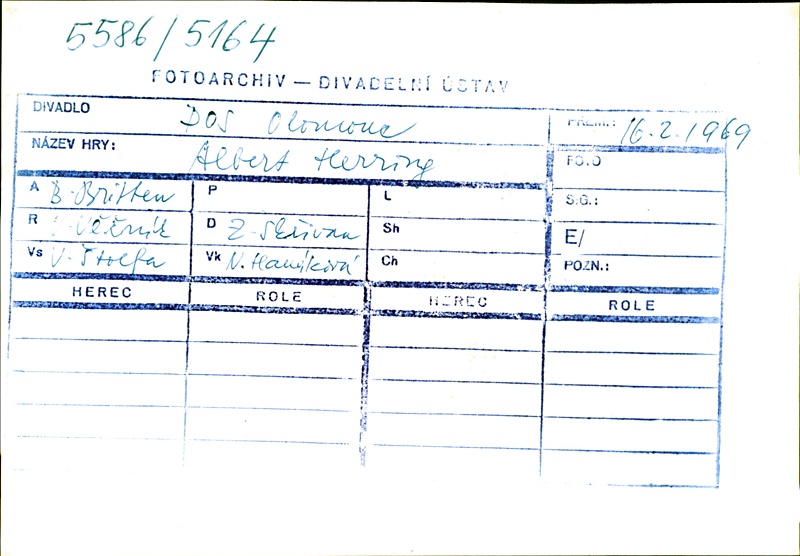 5586/5164
FOTOARCHIV — DIVADELNÍ ÚSTAV
DIVADLO DOS Olomouc PREM.: 16.2.1969
NÁZEV HRY: Albert Herring FOTO
A B. Britten P L S.G.:
R Věžník D Z. Skřivan Sh E/
Vs V. Štolfa Vk N. Hanáková Ch POZN.:
HEREC ROLE HEREC ROLE